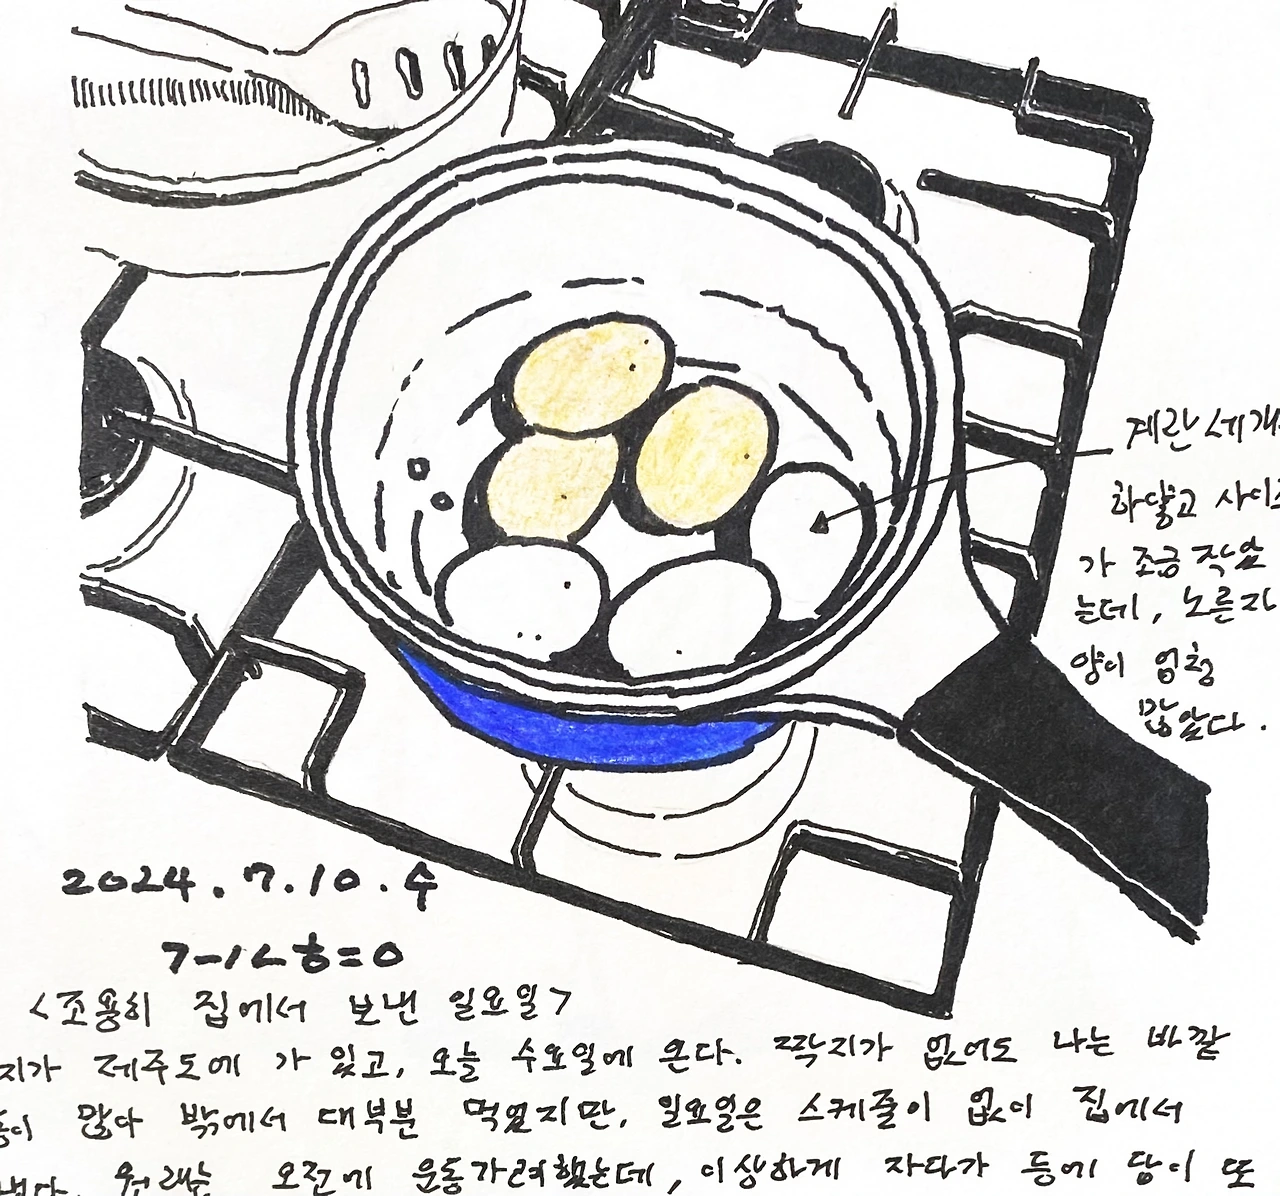 계란 세개
하얗고 사이즈
가 조금 작았
는데, 노른자
양이 엄청
많았다.
2024.7.10.수
<조용히 집에서 보낸 일요일>
지가 제주도에 가 있고, 오늘 수요일에 온다. 딱지가 없어도 나는 바깥
많아 밖에서 대부분 먹었지만, 일요일은 스케줄이 없이 집에서
원래는 오전에 운동가려했는데, 이상하게 자다가 등에 담이 또